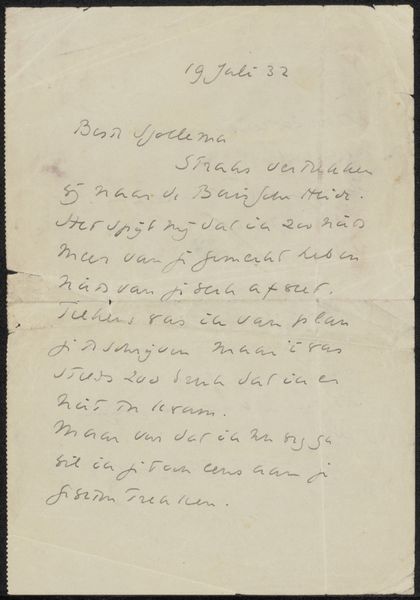 19 Juli 32
Beste Sjollema
Straks vertrekken
wij naar de Bairische Heide.
Het spijt mij dat ik zoo niets
meer van je gemerkt heb en
niets van je werk af weet.
Telkens was ik van plan
je te schrijven maar 't was
steeds zoo druk dat ik er
niet toe kwam.
Maar voor dat ik nu weg ga
wil ik je toch eens aan je
trekken.